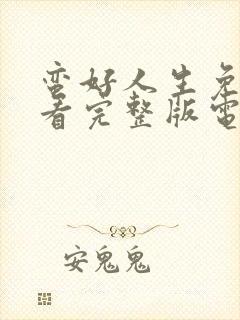 蛮好人生免
看完整版電
安鬼鬼